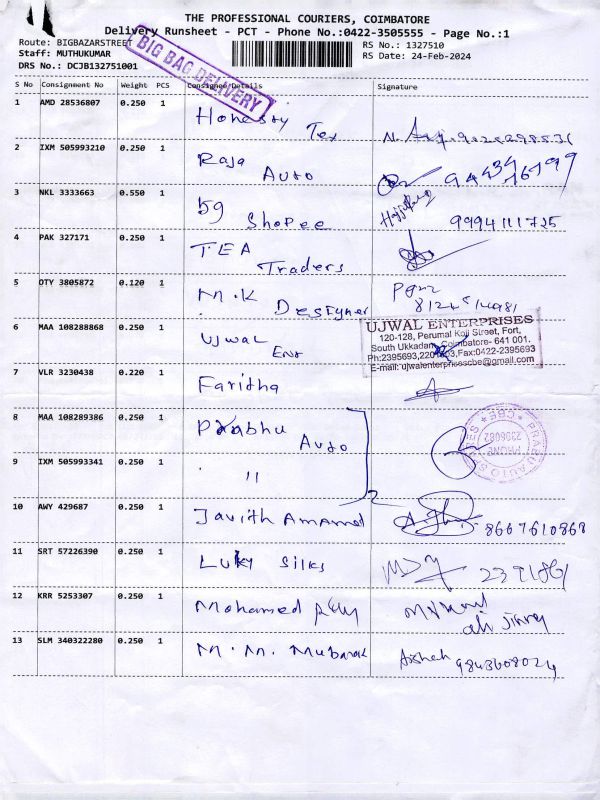 THE PROFESSIONAL COURIERS, COIMBATORE
Delivery Runsheet - PCT - Phone No.:0422-3505555 - Page No.:1
Route: BIGBAZARSTREET
RS No.: 1327510
Staff: MUTHUKUMAR
RS Date: 24-Feb-2024
DRS No.: DCJB132751001
BIG BAG DELIVERY
S No Consignment No Weight PCS Consignee/Details Signature
1 AMD 28536807 0.250 1 Honesty Tex
2 IXM 505993210 0.250 1 Raja Auto
3 NKL 3333663 0.550 1 59 Shopee 9994111725
4 PAK 327171 0.250 1 TEA Traders
5 OTY 3805872 0.120 1 M.K Designer
6 MAA 108288868 0.250 1 Ujwal Ent
UJWAL ENTERPRISES
120-128, Perumal Koil Street, Fort,
South Ukkadam, Coimbatore- 641 001.
Ph:2395693, Fax:0422-2395693
E-mail: ujwalenterprisescbe@gmail.com
7 VLR 3230438 0.220 1 Faridha
8 MAA 108289386 0.250 1 Prabhu Auto
PRABHU AUTO
* CBE *
PHONE
2396082
9 IXM 505993341 0.250 1 "
10 AWY 429687 0.250 1 Javith Ahamed 8667610868
11 SRT 57226390 0.250 1 Luky Silks
12 KRR 5253307 0.250 1 Mohamed
13 SLM 340322280 0.250 1 M. M. Mubarak Aishah 9843608024